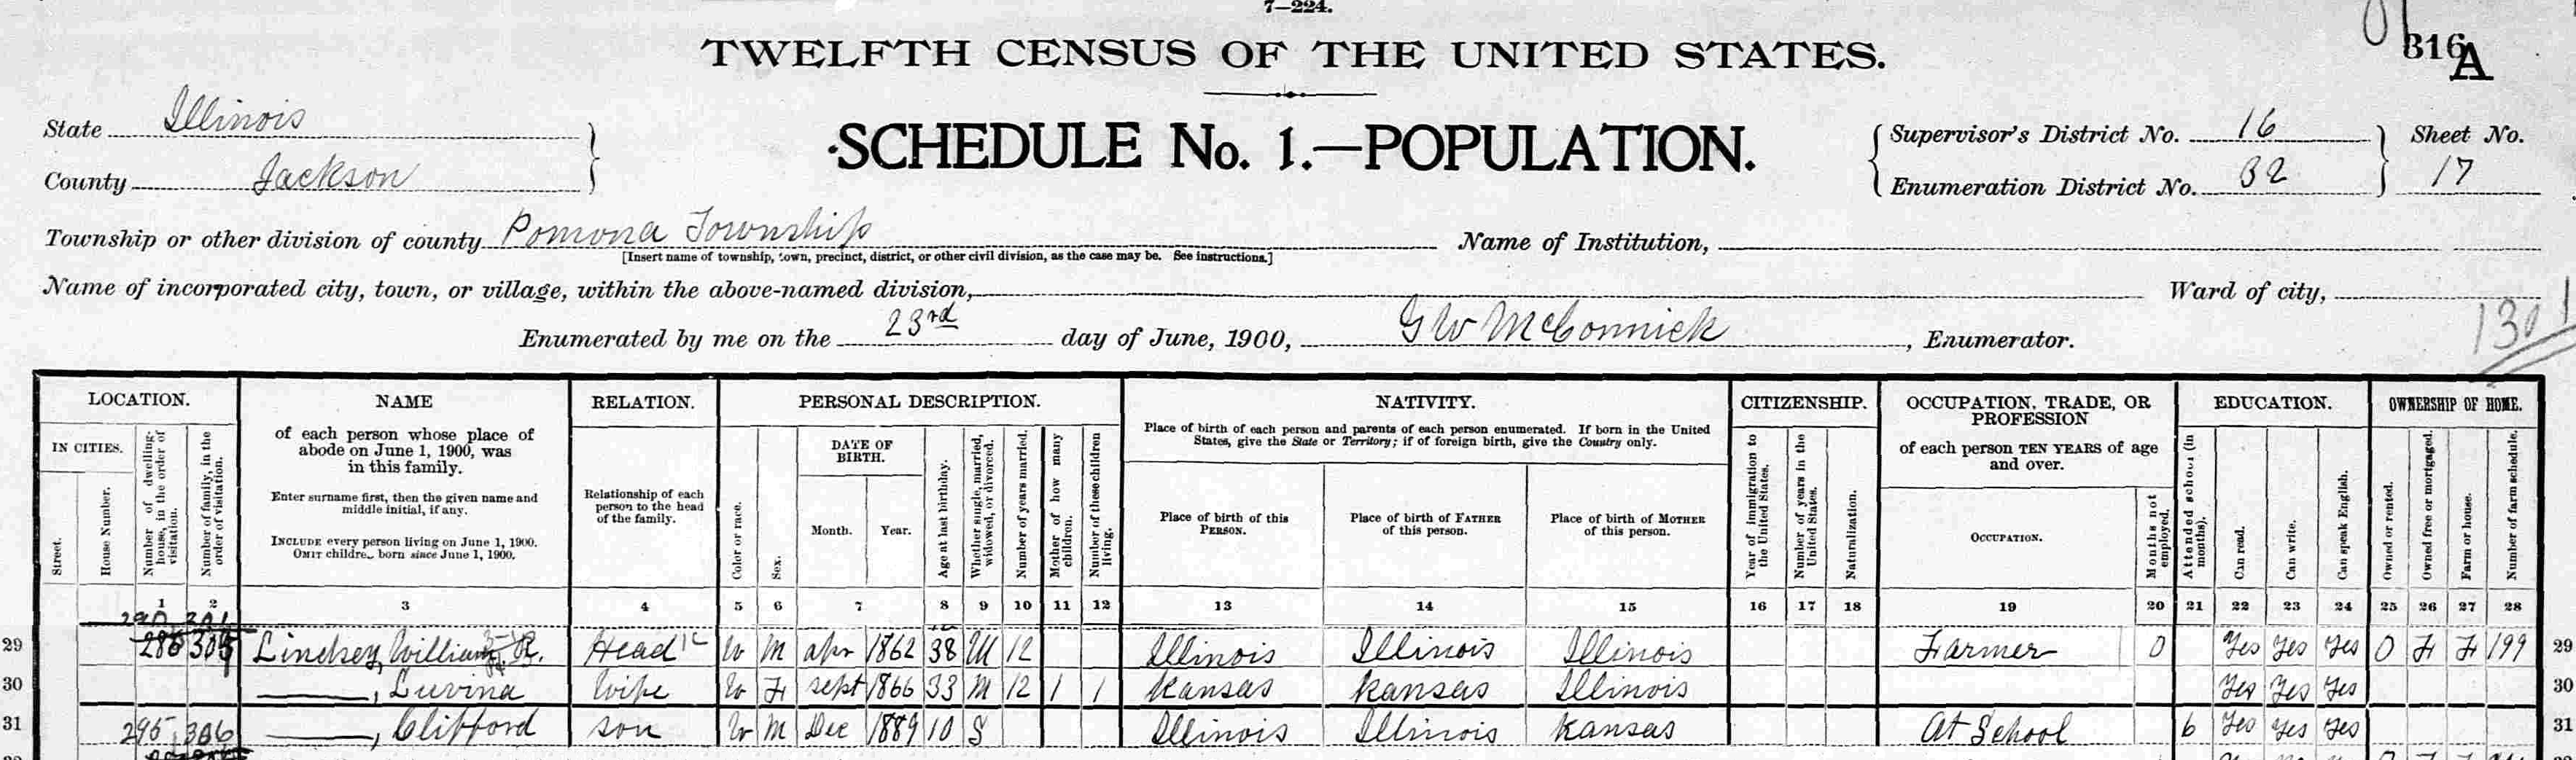 7—224.
TWELFTH CENSUS OF THE UNITED STATES.
316
A
State Illinois
County Jackson
SCHEDULE No. 1.—POPULATION.
Supervisor's District No. 16
Enumeration District No. 32
Sheet No.
17
Township or other division of county Pomona Township
Name of Institution,
[Insert name of township, town, precinct, district, or other civil division, as the case may be. See instructions.]
Name of incorporated city, town, or village, within the above-named division,
Ward of city,
Enumerated by me on the 23rd day of June, 1900, G W McConnick, Enumerator.
1301
LOCATION.
IN CITIES.
Street.
House Number.
Number of dwelling-house, in the order of visitation.
Number of family, in the order of visitation.
NAME
of each person whose place of
abode on June 1, 1900, was
in this family.
Enter surname first, then the given name and
middle initial, if any.
INCLUDE every person living on June 1, 1900.
OMIT children born since June 1, 1900.
RELATION.
Relationship of each
person to the head
of the family.
PERSONAL DESCRIPTION.
Color or race.
Sex.
DATE OF
BIRTH.
Month.
Year.
Age at last birthday.
Whether single, married, widowed, or divorced.
Number of years married.
Mother of how many children.
Number of these children living.
NATIVITY.
Place of birth of each person and parents of each person enumerated. If born in the United
States, give the State or Territory; if of foreign birth, give the Country only.
Place of birth of this
PERSON.
Place of birth of FATHER
of this person.
Place of birth of MOTHER
of this person.
CITIZENSHIP.
Year of immigration to the United States.
Number of years in the United States.
Naturalization.
OCCUPATION, TRADE, OR
PROFESSION
of each person TEN YEARS of age
and over.
OCCUPATION.
Months not employed.
EDUCATION.
Attended school (in months).
Can read.
Can write.
Can speak English.
OWNERSHIP OF HOME.
Owned or rented.
Owned free or mortgaged.
Farm or house.
Number of farm schedule.
1 2 3 4 5 6 7 8 9 10 11 12 13 14 15 16 17 18 19 20 21 22 23 24 25 26 27 28
290 301
29 286 305 Lindsey, William R. Head W M apr 1862 38 M 12 Illinois Illinois Illinois Farmer 0 Yes Yes Yes O F F 199 29
30 ——, Luvina Wife W F sept 1866 33 M 12 1 1 Kansas Kansas Illinois Yes Yes Yes 30
31 295 306 ——, Clifford son W M Dec 1889 10 S Illinois Illinois Kansas At School 6 Yes Yes Yes 31